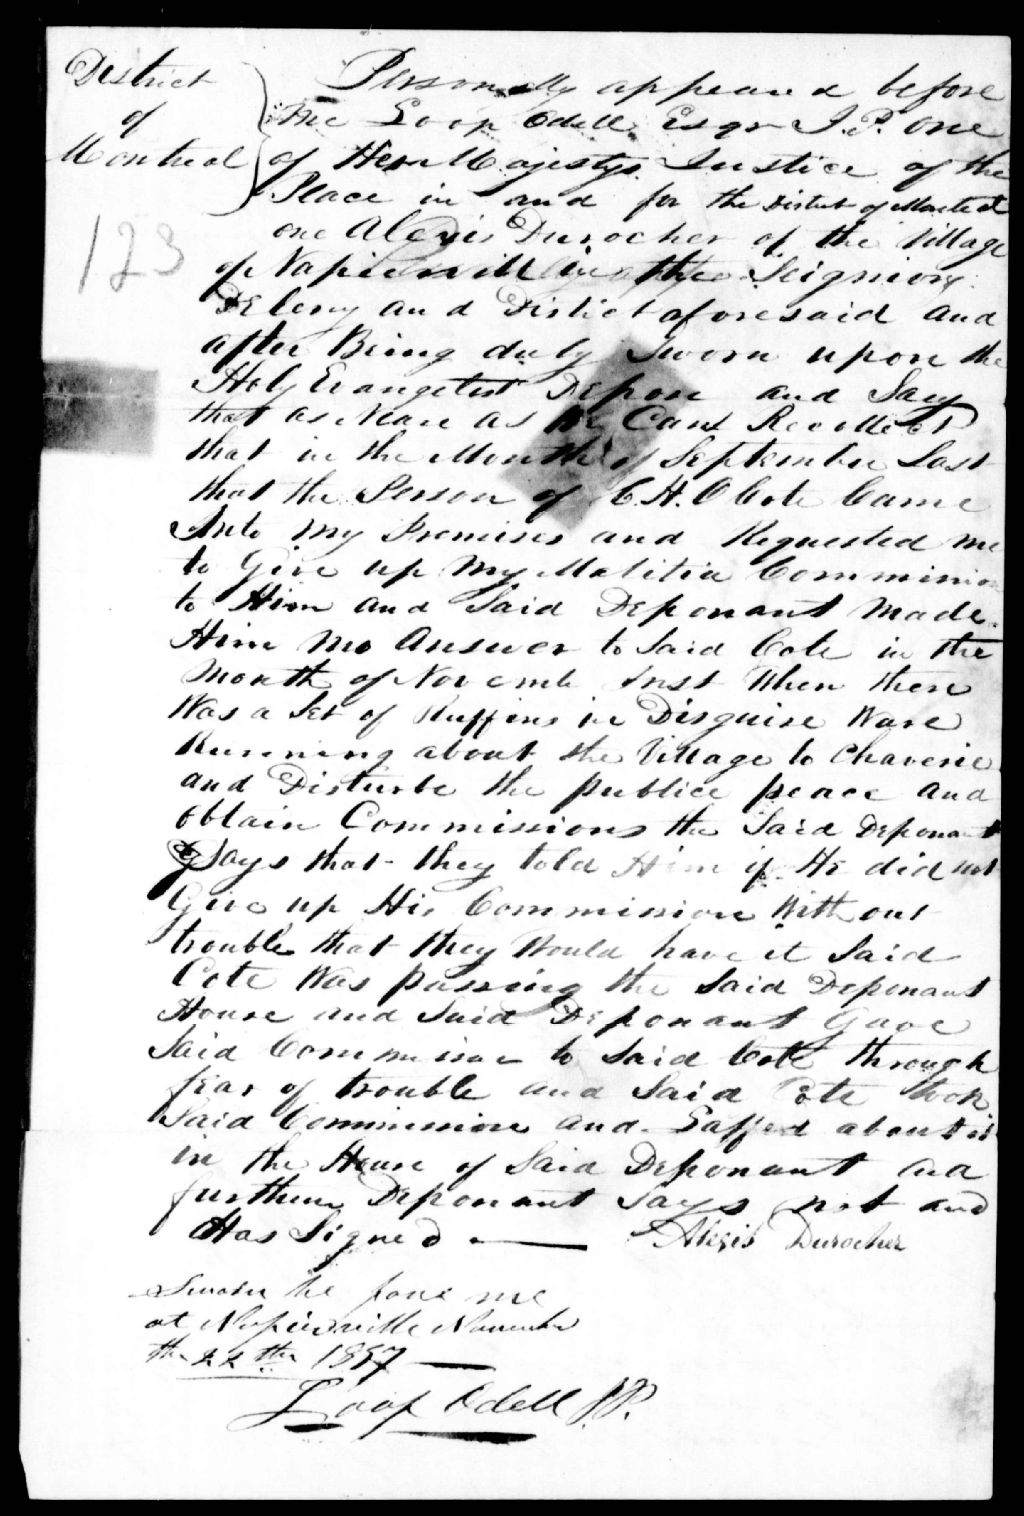 District
of
Montreal
123
Personally appeared before
me Loop Odell Esqr J.P. one
of Her Majestys Justice of the
Place in and for the District of Montreal
one Alexis Durocher of the Village
of Napierville in the Seigniory
DeLery and District aforesaid and
after Being duly Sworn upon the
Holy Evangelist Depose and Say
that as Neare as He Cant Recollect
that in the Month of September Last
that the Person of C.H.O Cote Came
Into my Premises and Requested me
to Give up my Malitia Commission
to Him and Said Deponant made
Him no Answer to Said Cote in the
Month of Novemb Inst When there
Was a Set of Ruffins in Disguise Ware
Running about the Village to
and Disturbe the publice peace and
obtain Commissions the Said Deponant
Says that they told Him if He did not
Give up His Commission With out
trouble that they Would have it Said
Cote Was passing the Said Deponant
House and Said Deponant Gave
Said Commission to Said Cote through
fear of trouble and Said Cote took
Said Commission and about it
in the House of Said Deponant and
further Deponant Says not and
Has Signed Alexis Durocher
Sworn be fore me
at Napierville November
the 22th 1837
Loop Odell J.P.